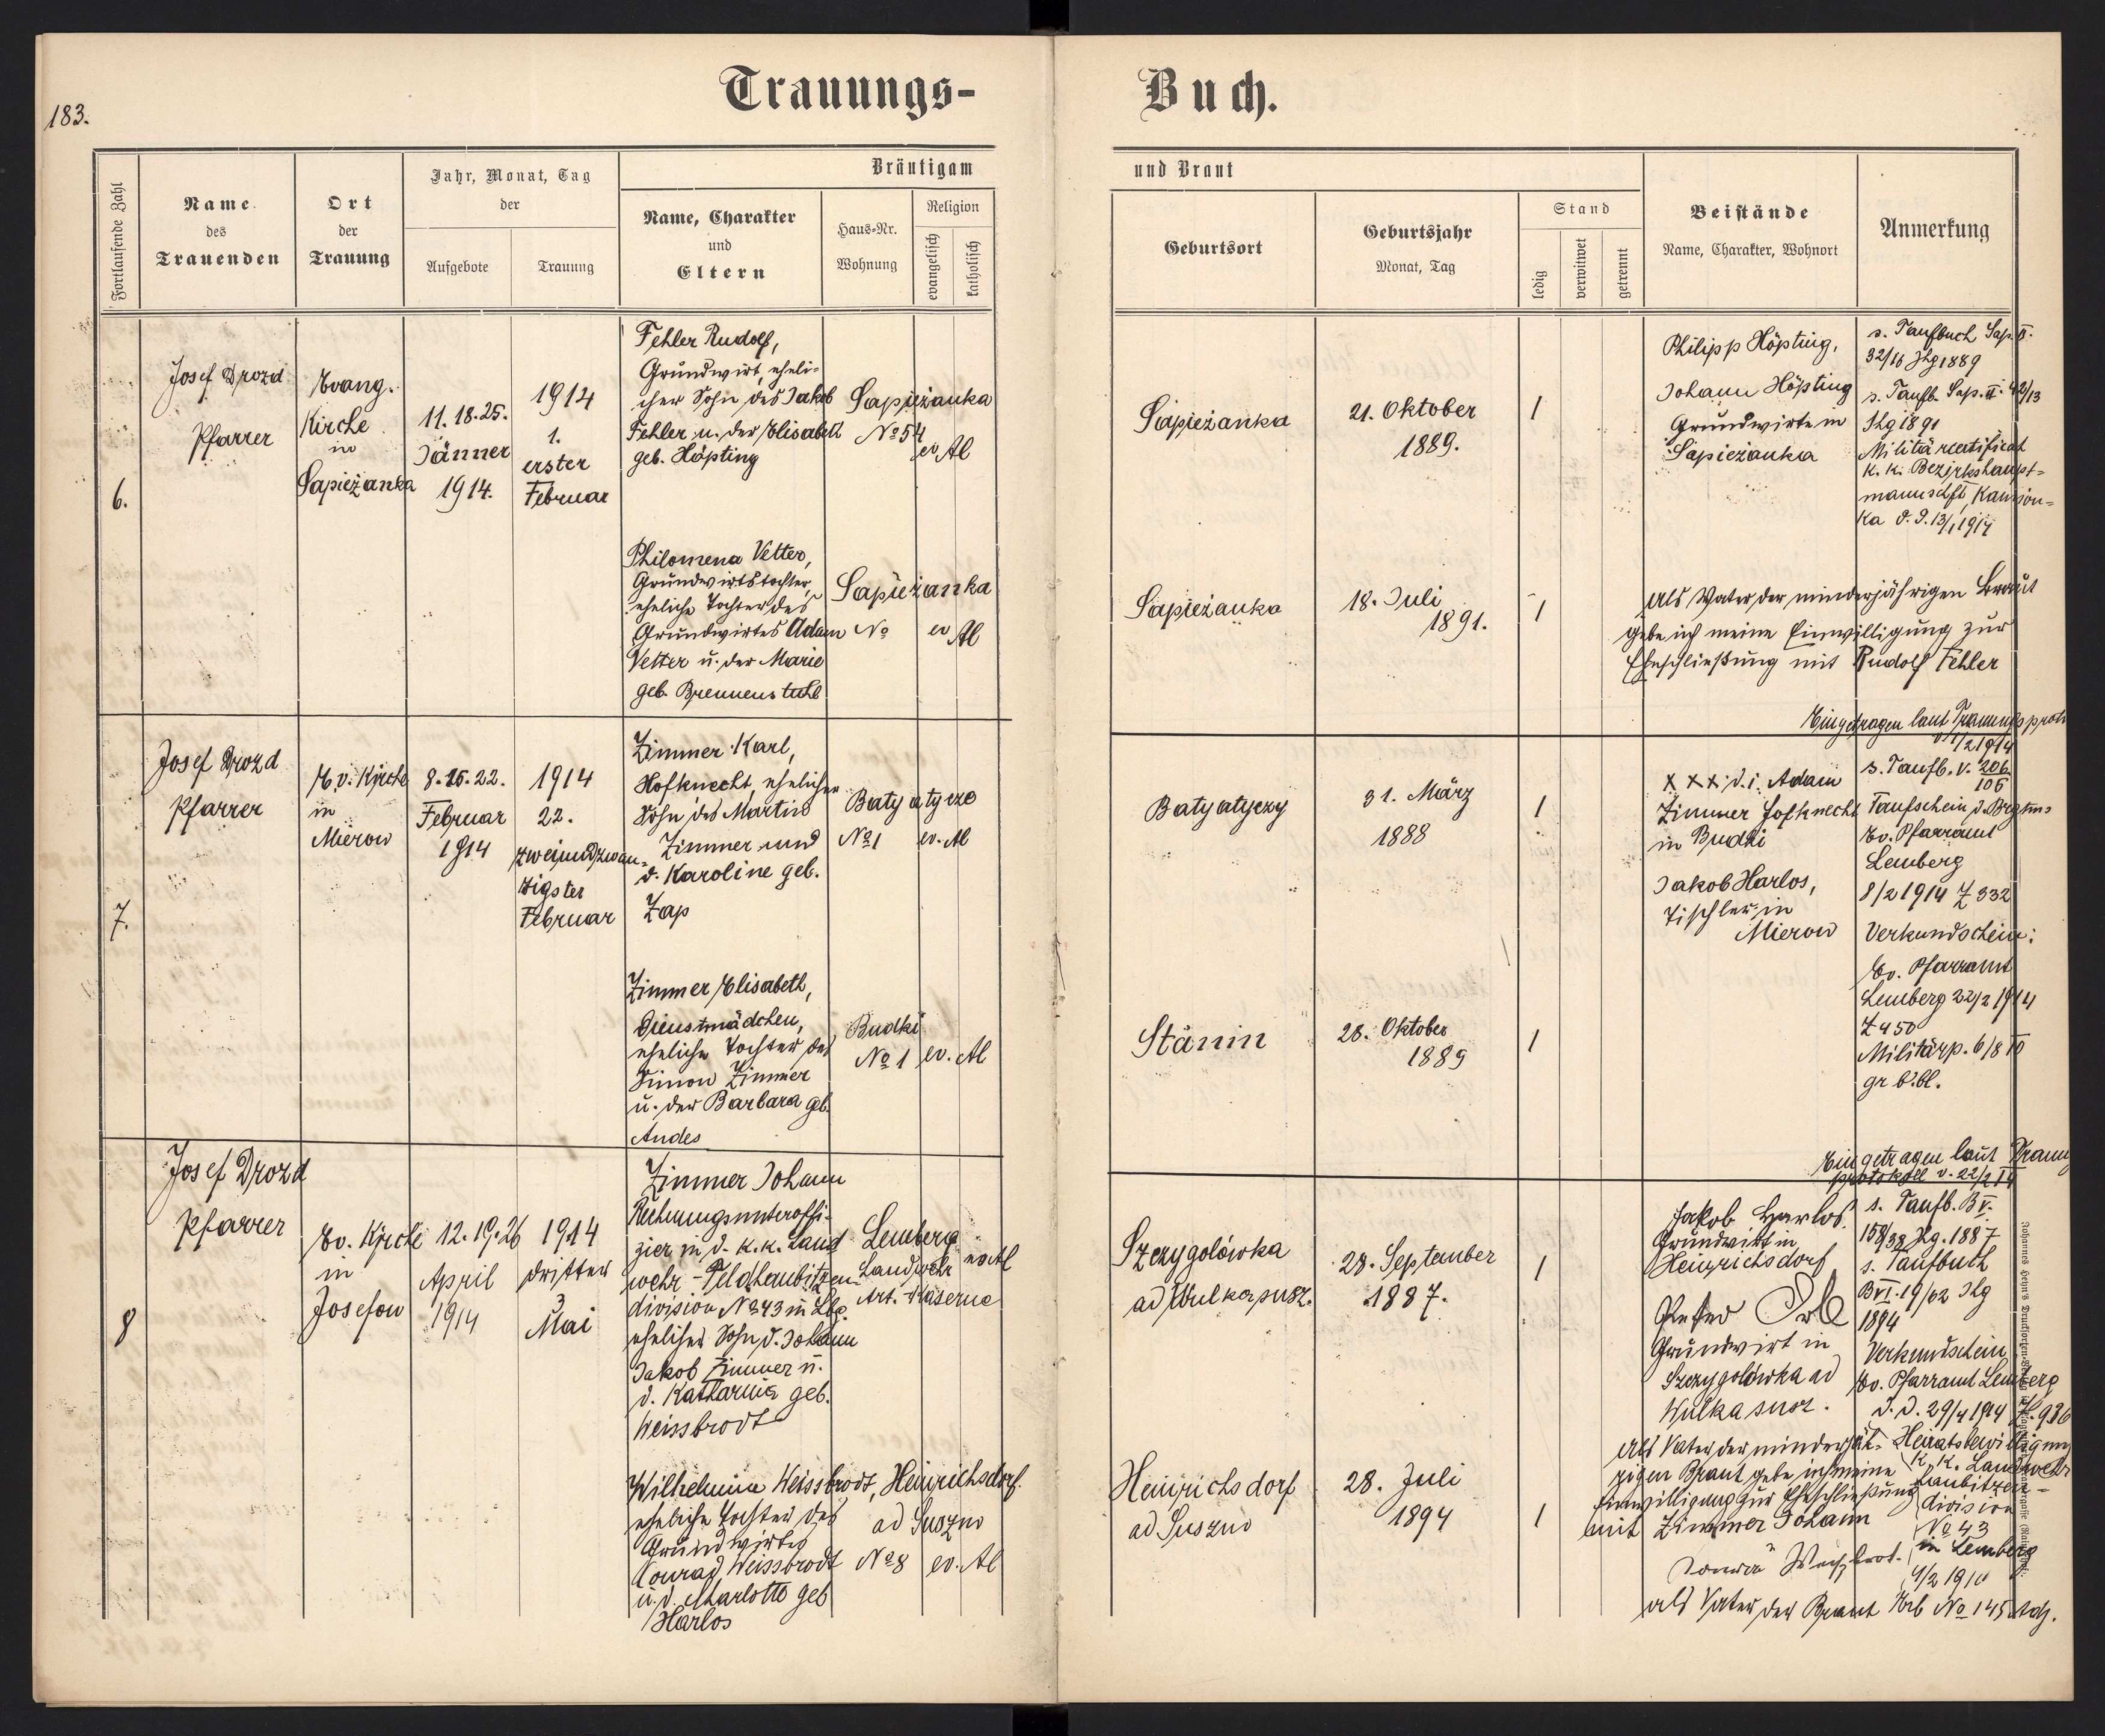 183.
Trauungs-
Buch.
Fortlaufende Zahl
Name
des
Trauenden
Ort
der
Trauung
Jahr, Monat, Tag
der
Aufgebote
Trauung
Bräutigam
Name, Charakter
und
Eltern
Haus-Nr.
Wohnung
Religion
evangelisch
katholisch
und Braut
Geburtsort
Geburtsjahr
Monat, Tag
Stand
ledig
verwitwet
getrennt
Beistände
Name, Charakter, Wohnort
Anmerkung
6.
Josef Drozd
Pfarrer
Evang.
Kirche
in
Sapieżanka
11. 18. 25.
Jänner
1914.
1914
1.
erster
Februar
Fehler Rudolf,
Grundwirt, eheli-
cher Sohn des Jakob
Fehler u. der Elisabeth
geb. Höpting
Sapieżanka
No 54
ev. AC
Sapieżanka
21. Oktober
1889.
1
Philipp Höpting,
Johann Höpting
Grundwirte in
Sapieżanka
s. Taufbuch Sap. II.
32/16 Jhg 1889
s. Taufb. Sap. II. 42/13
Jhg 1891
Militärcertificat
k. k. Bezirkshaupt-
mannschft, Kamion-
ka d. d. 13/1 1914
Philomena Vetter,
Grundwirtstochter,
eheliche Tochter des
Grundwirtes Adam
Vetter u. der Marie
geb. Brennenstuhl
Sapieżanka
No
ev AC
Sapieżanka
18. Juli
1891.
1
Als Vater der minderjährigen Braut
gebe ich meine Einwilligung zur
Eheschließung mit Rudolf Fehler
Eingetragen laut Trauungsprot.
v 1/2 1914
7.
Josef Drozd
Pfarrer
Ev. Kirche
in
Mierow
8. 15. 22.
Februar
1914
1914
22.
zweiundzwan-
zigster
Februar
Zimmer Karl,
Hofknecht, ehelicher
Sohn des Martin
Zimmer und
d. Karoline geb.
Zap
Batyatycze
No 1
ev. AC
Batyatyczy
31. März
1888
1
x x x d. i. Adam
Zimmer Hofknecht
in Budki
Jakob Harlos,
Tischler in
Mierow
s. Taufb. V. 206
106
Taufschein d. Brgtms
Ev. Pfarramt
Lemberg
8/2 1914 Z 332
Verkundschein:
Ev. Pfarramt
Lemberg 22/2 1914
Z 450
Militärp. 6/8 10
gr bl.
Zimmer Elisabeth,
Dienstmädchen,
eheliche Tochter des
Simon Zimmer
u. der Barbara geb.
Andes
Budki
No 1
ev. AC
Stanin
28. Oktober
1889
1
Eingetragen laut Traung
protokoll v. 22/2 14
8
Josef Drozd
Pfarrer
Ev. Kirche
in
Josefow
12. 19. 26
April
1914
1914
dritter
3
Mai
Zimmer Johann
Rechnungsunteroffi-
zier in d. k. k. Land
wehr-Feldhaubitzen-
division No 43 in Lbg.
ehelicher Sohn d. Johann
Jakob Zimmer u.
d. Katharina geb.
Weissbrodt
Lemberg
Landwehr
Art.-Kaserne
ev AC
Szczygolówka
ad Wulkapusz.
28. September
1887.
1
Jakob Harlos.
Grundwirt in
Heinrichsdorf
Peter Orb
Grundwirt in
Szczygolówka ad
Wulka susz.
s. Taufb. B V.
158/38 Jhg. 1887
s. Taufbuch
B VI. 19/62 Jhg
1894
Verkundschein
Ev. Pfarramt Lemberg
d. d. 29/4 1914 Z. 986
Heiratsbewilligung
k. k. Landwehr
haubitzen-
division
No 43
in Lemberg
Wilhelmina Weissbrodt,
eheliche Tochter des
Grundwirtes
Conrad Weissbrodt
u. d. Charlotte geb
Harlos
Heinrichsdorf
ad Suszno
No 8
ev. AC
Heinrichsdorf
ad Suszno
28. Juli
1894
1
Als Vater der minderjäh-
rigen Braut gebe ich meine
Einwilligung zur Eheschließung
mit Zimmer Johann
als Vater der Braut